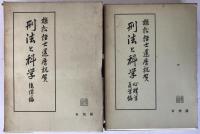 植松博士還暦祝賀
刑法と科学
法律編
有斐閣
植松博士還暦祝賀
刑法と科学
心理学
医学編
有斐閣